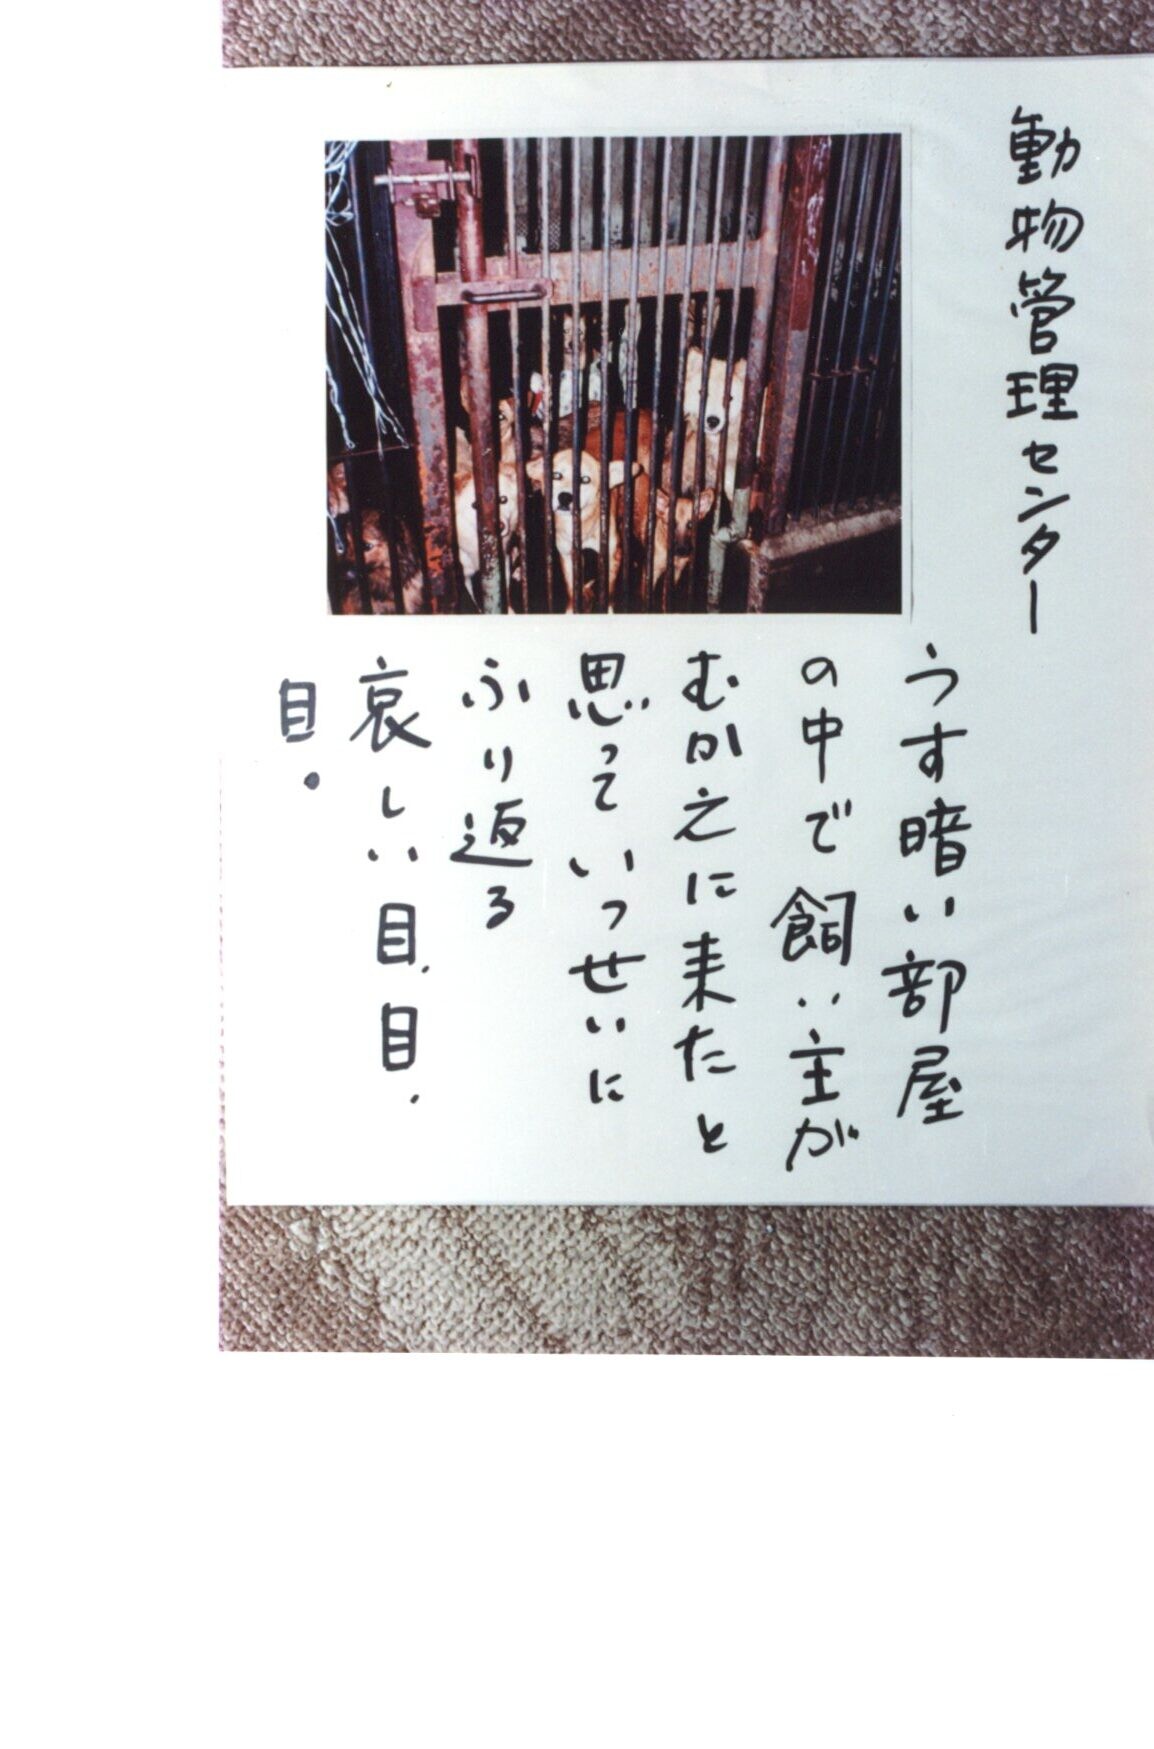 動物管理センター
うす暗い部屋
の中で飼い主が
むかえに来たと
思っていっせいに
ふり返る
哀しい目、目、
目。